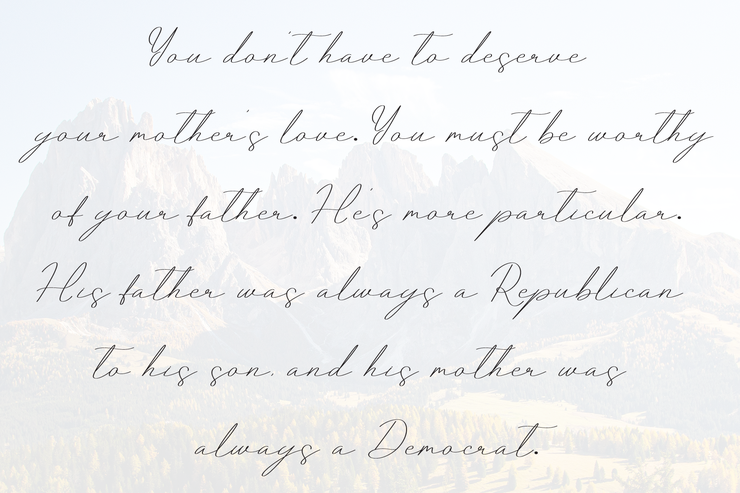 You don't have to deserve
your mother's love. You must be worthy
of your father. He's more particular.
His father was always a Republican
to his son, and his mother was
always a Democrat.